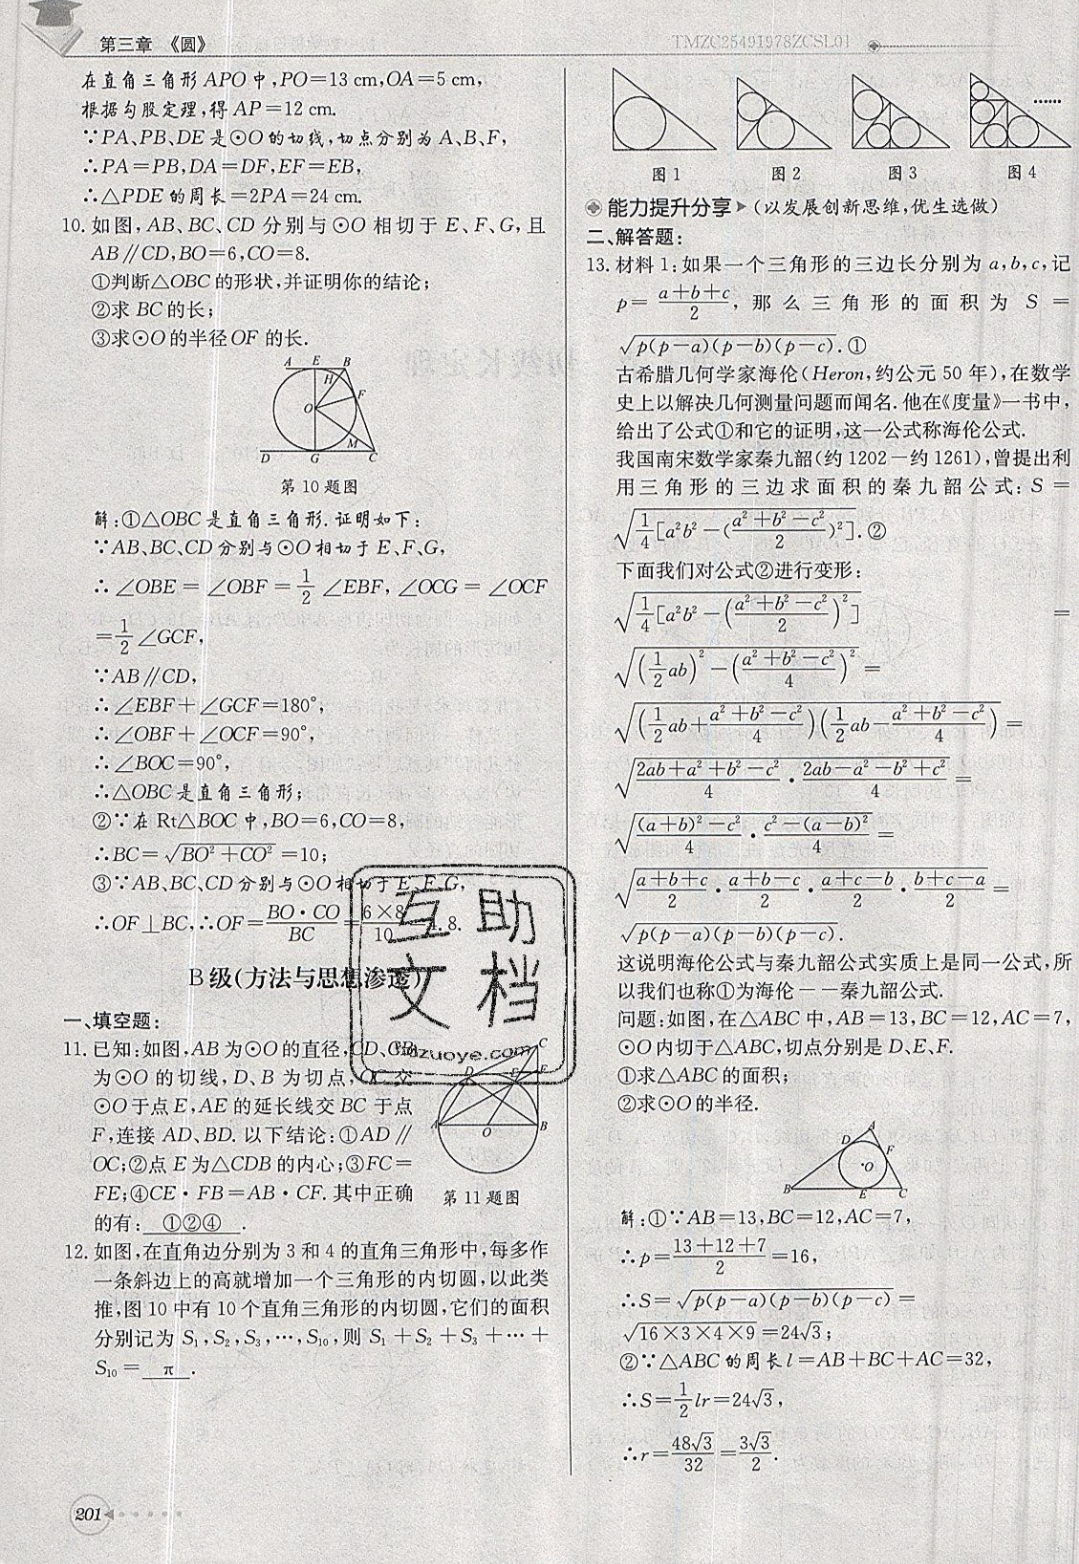 第三章 《圆》
TMZC25491978ZCSL01
在直角三角形 APO 中,PO=13 cm,OA=5 cm,
根据勾股定理,得 AP=12 cm.
∵PA、PB、DE 是⊙O 的切线,切点分别为 A、B、F,
∴PA=PB,DA=DF,EF=EB,
∴△PDE 的周长=2PA=24 cm.
10. 如图,AB、BC、CD 分别与⊙O 相切于 E、F、G,且
AB∥CD,BO=6,CO=8.
①判断△OBC 的形状,并证明你的结论;
②求 BC 的长;
③求⊙O 的半径 OF 的长.
A E B
H
F
O
M
D G C
第 10 题图
解:①△OBC 是直角三角形.证明如下:
∵AB、BC、CD 分别与⊙O 相切于 E、F、G,
∴∠OBE=∠OBF=1/2∠EBF,∠OCG=∠OCF
=1/2∠GCF,
∵AB∥CD,
∴∠EBF+∠GCF=180°,
∴∠OBF+∠OCF=90°,
∴∠BOC=90°,
∴△OBC 是直角三角形;
②∵在 Rt△BOC 中,BO=6,CO=8,
∴BC=√(BO²+CO²)=10;
③∵AB、BC、CD 分别与⊙O 相切于 E、F、G,
∴OF⊥BC,∴OF=(BO·CO)/BC=(6×8)/10=4.8.
B 级(方法与思想渗透)
一、填空题:
11. 已知:如图,AB 为⊙O 的直径,CD、CB
为⊙O 的切线,D、B 为切点,OC 交
⊙O 于点 E,AE 的延长线交 BC 于点
F,连接 AD、BD. 以下结论:①AD∥
OC;②点 E 为△CDB 的内心;③FC=
FE;④CE·FB=AB·CF. 其中正确
的有: ①②④ .
C
D E F
A O B
第 11 题图
12. 如图,在直角边分别为 3 和 4 的直角三角形中,每多作
一条斜边上的高就增加一个三角形的内切圆,以此类
推,图 10 中有 10 个直角三角形的内切圆,它们的面积
分别记为 S₁,S₂,S₃,…,S₁₀,则 S₁+S₂+S₃+…+
S₁₀= π .
互助
文档
hdzuoye.com
……
图 1 图 2 图 3 图 4
能力提升分享 (以发展创新思维,优生选做)
二、解答题:
13. 材料 1:如果一个三角形的三边长分别为 a,b,c,记
p=(a+b+c)/2,那么三角形的面积为 S=
√(p(p-a)(p-b)(p-c)).①
古希腊几何学家海伦(Heron,约公元 50 年),在数学
史上以解决几何测量问题而闻名.他在《度量》一书中,
给出了公式①和它的证明,这一公式称海伦公式.
我国南宋数学家秦九韶(约 1202-约 1261),曾提出利
用三角形的三边求面积的秦九韶公式:S=
√(1/4[a²b²-((a²+b²-c²)/2)²]).②
下面我们对公式②进行变形:
√(1/4[a²b²-((a²+b²-c²)/2)²]) =
√((1/2ab)²-((a²+b²-c²)/4)²) =
√((1/2ab+(a²+b²-c²)/4)(1/2ab-(a²+b²-c²)/4)) =
√((2ab+a²+b²-c²)/4·(2ab-a²-b²+c²)/4) =
√(((a+b)²-c²)/4·(c²-(a-b)²)/4) =
√((a+b+c)/2·(a+b-c)/2·(a+c-b)/2·(b+c-a)/2) =
√(p(p-a)(p-b)(p-c)).
这说明海伦公式与秦九韶公式实质上是同一公式,所
以我们也称①为海伦--秦九韶公式.
问题:如图,在△ABC 中,AB=13,BC=12,AC=7,
⊙O 内切于△ABC,切点分别是 D、E、F.
①求△ABC 的面积;
②求⊙O 的半径.
A
D F
O
B E C
解:①∵AB=13,BC=12,AC=7,
∴p=(13+12+7)/2=16,
∴S=√(p(p-a)(p-b)(p-c))=
√(16×3×4×9)=24√3;
②∵△ABC 的周长 l=AB+BC+AC=32,
∴S=1/2lr=24√3,
∴r=48√3/32=3√3/2.
201